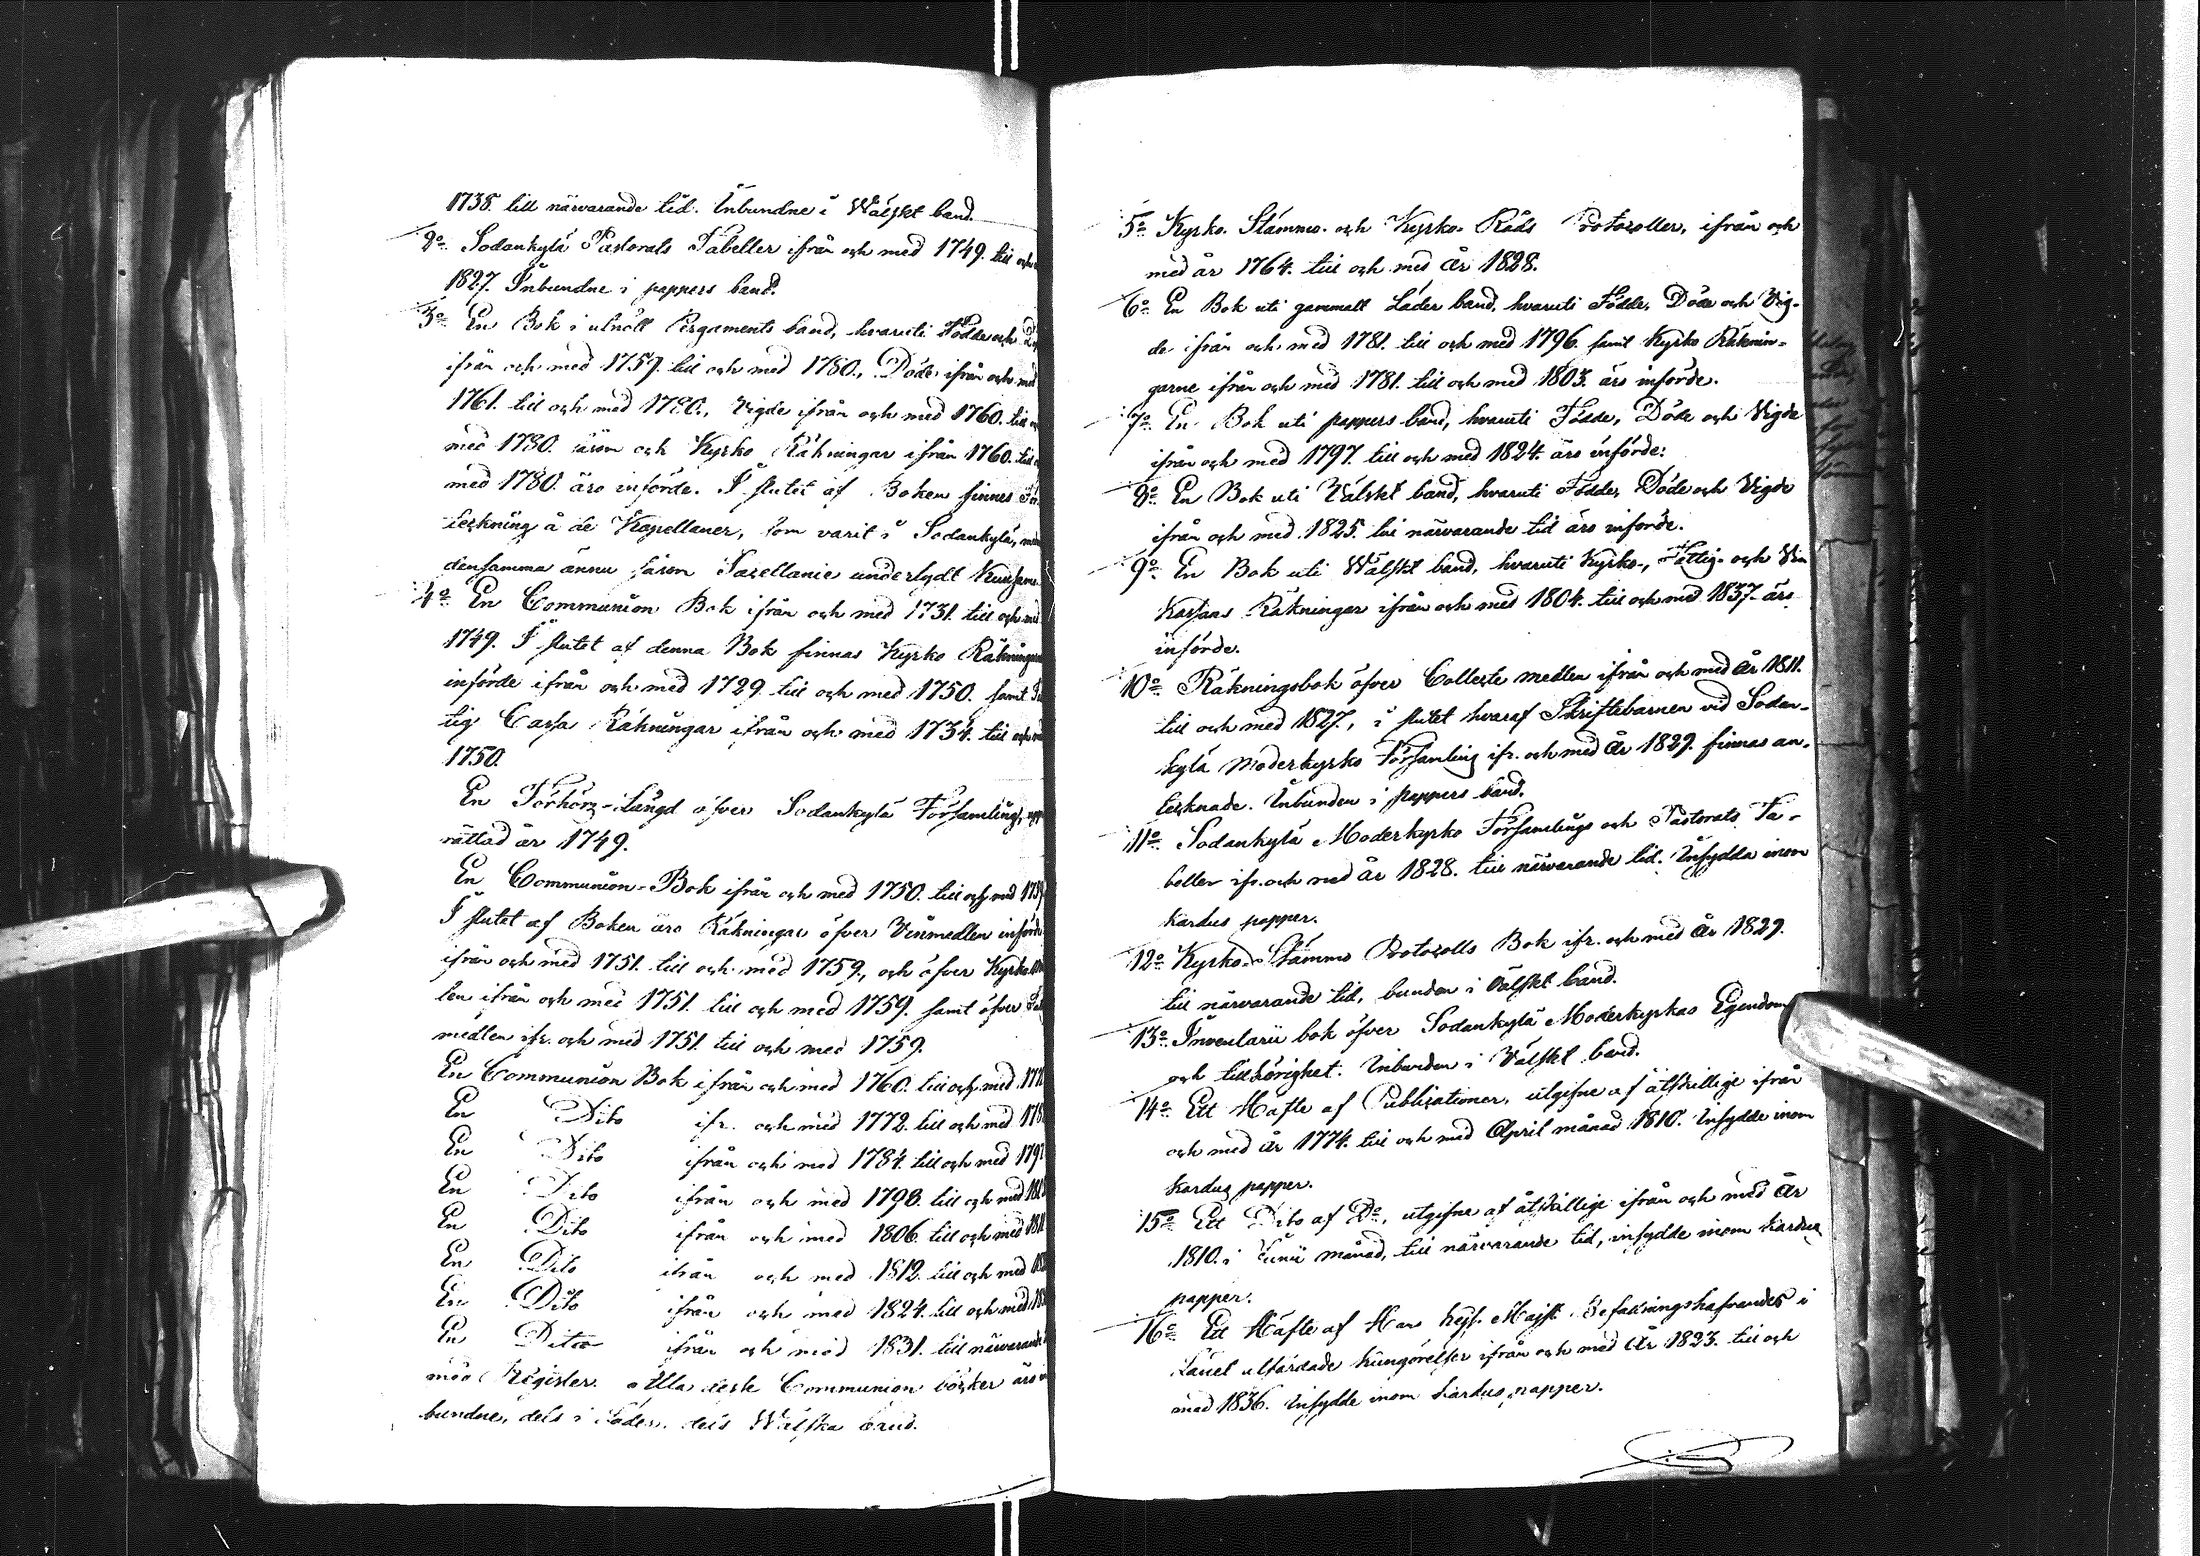 1738. till närvarande tid. Inbundne i Wälskt band.
2o Sodankylä Pastorats Tabeller ifrån och med 1749. till och
1827. Inbundne i pappers band.
3o En Bok i utnött Pergaments band, hvaruti Födde och
ifrån och med 1759. till och med 1780., Döde ifrån och med
1761. till och med 1780., Vigde ifrån och med 1760. till
med 1780. äfven och Kyrko Räkningar ifrån 1760. till
med 1780. äro införde. I slutet af Boken finnes För-
teckning å de Kapellaner, som varit i Sodankylä,
densamma ännu såsom Capellanie underlydt Kuusamo
4o En Communion Bok ifrån och med 1731. till och med
1749. I slutet af denna Bok finnas Kyrko Räkningar
införde ifrån och med 1729. till och med 1750. samt Fat-
tig Cassa Räkningar ifrån och med 1734. till och med
1750.
En Förhörs-Längd öfver Sodankylä Församling, upp-
rättad år 1749.
En Communion-Bok ifrån och med 1750. till och med 1759
I slutet af Boken äro Räkningar öfver Vinmedlen införde
ifrån och med 1751. till och med 1759, och öfver Kyrko
len ifrån och med 1751. till och med 1759. samt öfver
medlen ifr. och med 1751. till och med 1759.
En Communion Bok ifrån och med 1760. till och med 177
En Dito ifr. och med 1772. till och med 178
En Dito ifrån och med 1784. till och med 179
En Dito ifrån och med 1798. till och med 180
En Dito ifrån och med 1806. till och med 181
En Dito ifrån och med 1812. till och med 18
En Dito ifrån och med 1824. till och med 18
En Ditto ifrån och med 1831. till närvarande
med Register. Alla desse Communion böcker äro in-
bundne, dels i Läder, dels Wälska band.
5o Kyrko-Stämmo- och Kyrko-Råds Protocoller, ifrån och
med år 1764. till och med år 1828.
6o En Bok uti gammalt Läder band, hvaruti Födde, Döde och Vig-
de ifrån och med 1781. till och med 1796. samt Kyrko Räknin-
garne ifrån och med 1781. till och med 1803. äro införde.
7o En Bok uti pappers band, hvaruti Födde, Döde och Vigde
ifrån och med 1797. till och med 1824. äro införde.
8o En Bok uti Välskt band, hvaruti Födde, Döde och Vigde
ifrån och med 1825. till närvarande tid äro införde.
9o En Bok uti Wälskt band, hvaruti Kyrko-, Fattig- och Vin
Kassans Räkningar ifrån och med 1804. till och med 1837. äro
införde.
10o Räkningsbok öfver Collecte medlen ifrån och med år 1811.
till och med 1827., i slutet hvaraf Skriftebarnen vid Sodan-
kylä Moderkyrko Församling ifr. och med år 1829. finnas an-
tecknade. Inbunden i pappers band.
11o Sodankylä Moderkyrko Församlings och Pastorats Ta-
beller ifr. och med år 1828. till närvarande tid. Insydda inom
kardus papper.
12o Kyrko-Stämmo Protocolls Bok ifr. och med år 1829.
till närvarande tid, bunden i Välskt band.
13o Inventarii bok öfver Sodankylä Moderkyrkas Egendom
och tillhörighet. Inbunden i Välskt band.
14o Ett Häfte af Publicationer, utgifne af åtskillige ifrån
och med år 1774. till och med April månad 1810. Insydde inom
kardus papper.
15o Ett Dito af Do, utgifne af åtskillige ifrån och med år
1810. i Junii månad, till närvarande tid, insydde inom kardus
papper.
16o Ett Häfte af Hans Kejs. Majst. Befallningshafvandes i
Länet utfärdade kungörelser ifrån och med år 1823. till och
med 1836. Insydde inom kardus papper.